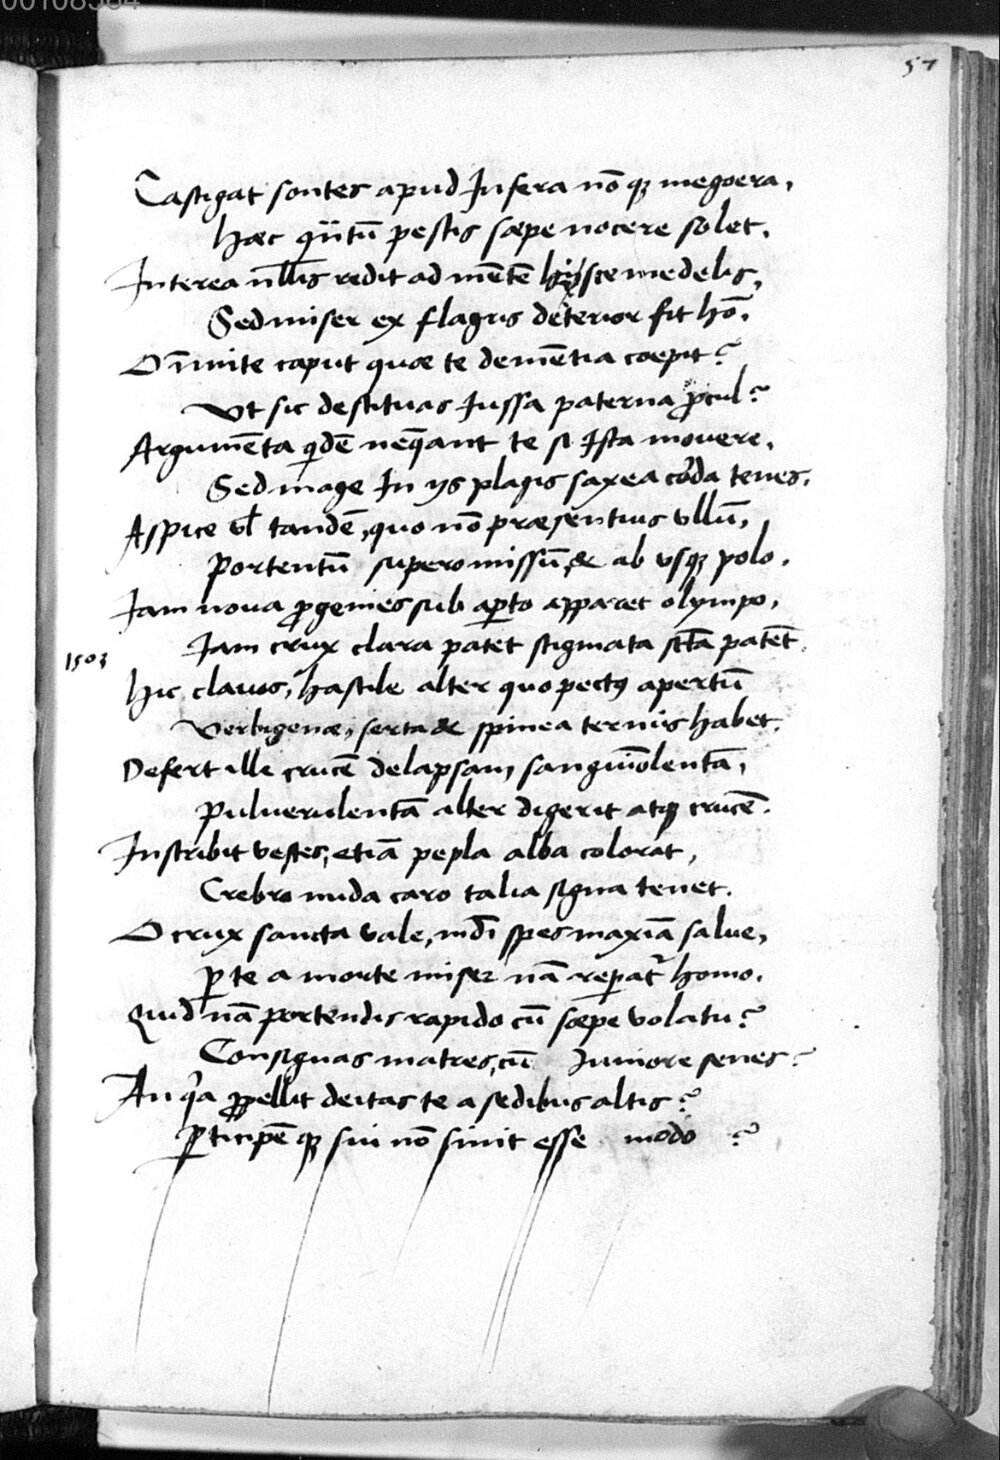 00108584
57
Castigat sontes apud Infera nō qꝫ megoera,
Hæc qūtū pestis sæpe nocere solet.
Interea nll̄is redit ad mētē hijsce medelis,
Sed miser ex flagris deterior fit hō.
O īmite caput quæ te demētia cœpit?
Vt sic destituas Iussa paterna ꝓcul?
Argumēta qdē neq̄ant te si Ista mouere,
Sed mage In ijs plagis saxea corda tenes.
Aspice vl̄ tandē, quo nō præsentius vllū,
Portentū supero missū, & ab vsqꝫ polo.
Iam noua ꝓgenies sub aꝑto apparet olympo,
Iam crux clara patet stigmata sct̄a patēt.
1503
Hic clauos, hastile alter quo pectꝰ apertū
Verbigenæ, serta & spinea ternis habet.
Defert ille crucē delapsam, sanguīolentā,
Puluerulentā alter digerit atqꝫ crucē.
Inscribit vestes, etiā pepla alba colorat,
Crebro nuda caro talia signa tenet.
O crux sancta vale, mūdi spes maxīa salue,
ꝑ te a morte miser nā reparat̄ homo.
Quid nā portendis rapido cū sæpe volatu?
Consignas matres, cū Iuniore senes?
An qa ꝓpellit deitas te a sedibus altis?
ꝑticipē qꝫ sui nō sinit esse modo ?